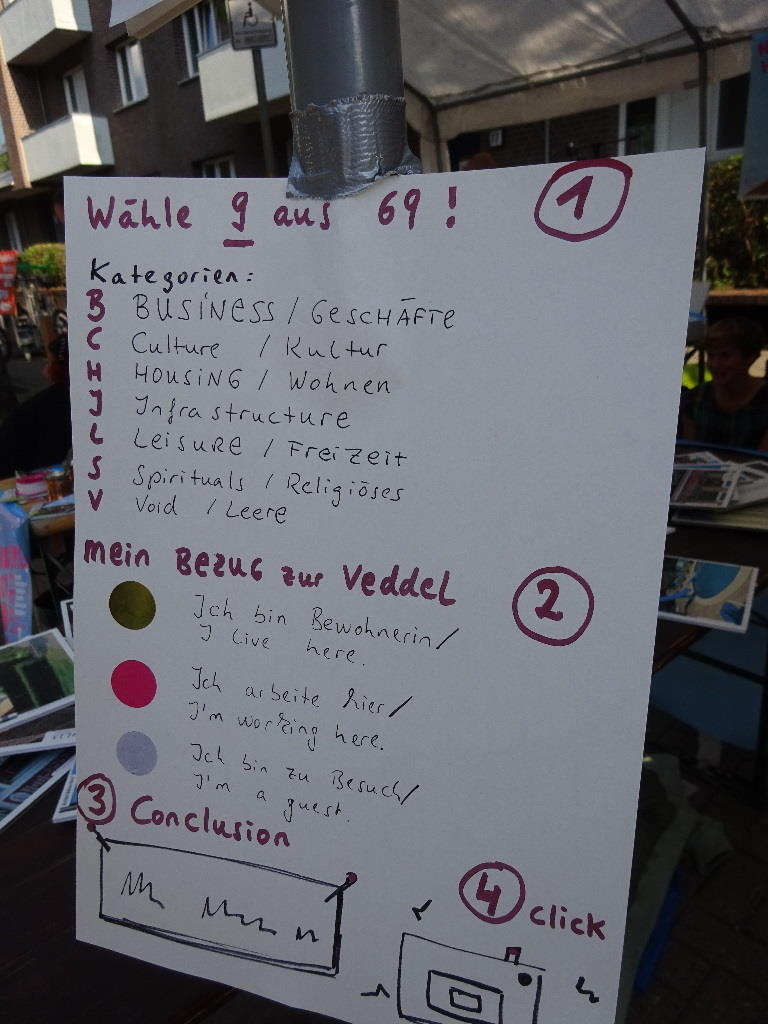 Wähle 9 aus 69 ! 1
Kategorien:
B BUSINESS / GESCHÄFTE
C Culture / Kultur
H HOUSING / Wohnen
I Infrastructure
L LEISURE / FREIZEIT
S Spirituals / Religiöses
V Void / Leere
mein BEZUG zur Veddel 2
Ich bin Bewohnerin/
I live here.
Ich arbeite hier/
I'm working here.
Ich bin zu Besuch/
I'm a guest.
3 Conclusion
4 click